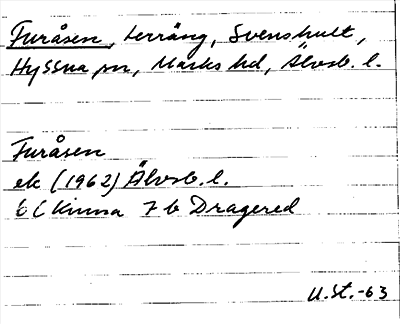 Furåsen, terräng, Svenshult,
Hyssna sn, Marks hd, Älvsb. l.
Furåsen
ek (1962) Älvsb. l.
6 C Kinna 7 b Dragered
U. St. -63